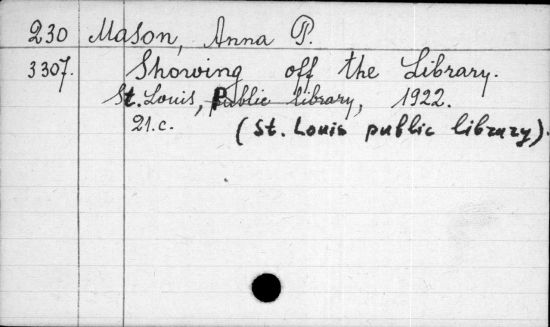 230 Mason, Anna P.
3307. Showing off the Library.
St. Louis, Public library, 1922.
21.c. (St. Louis public library).